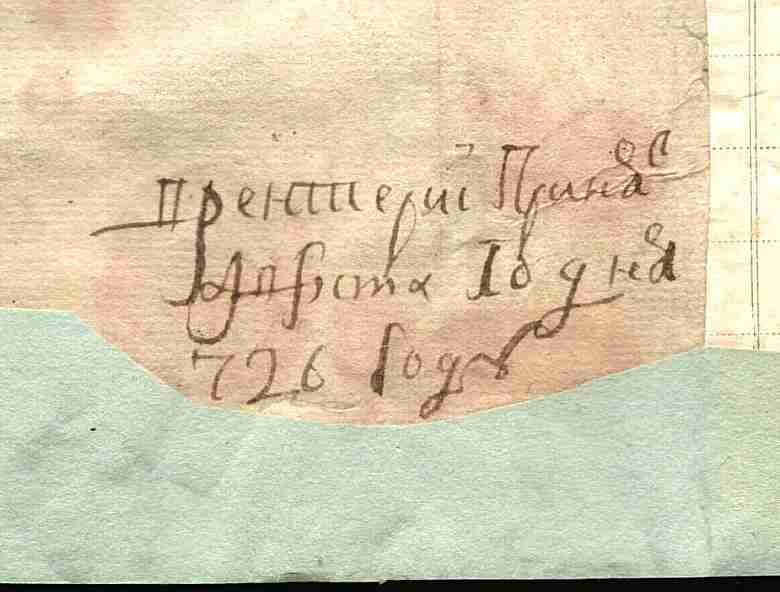 прентпереи Принѧс
Августа 10 дня
726 Году